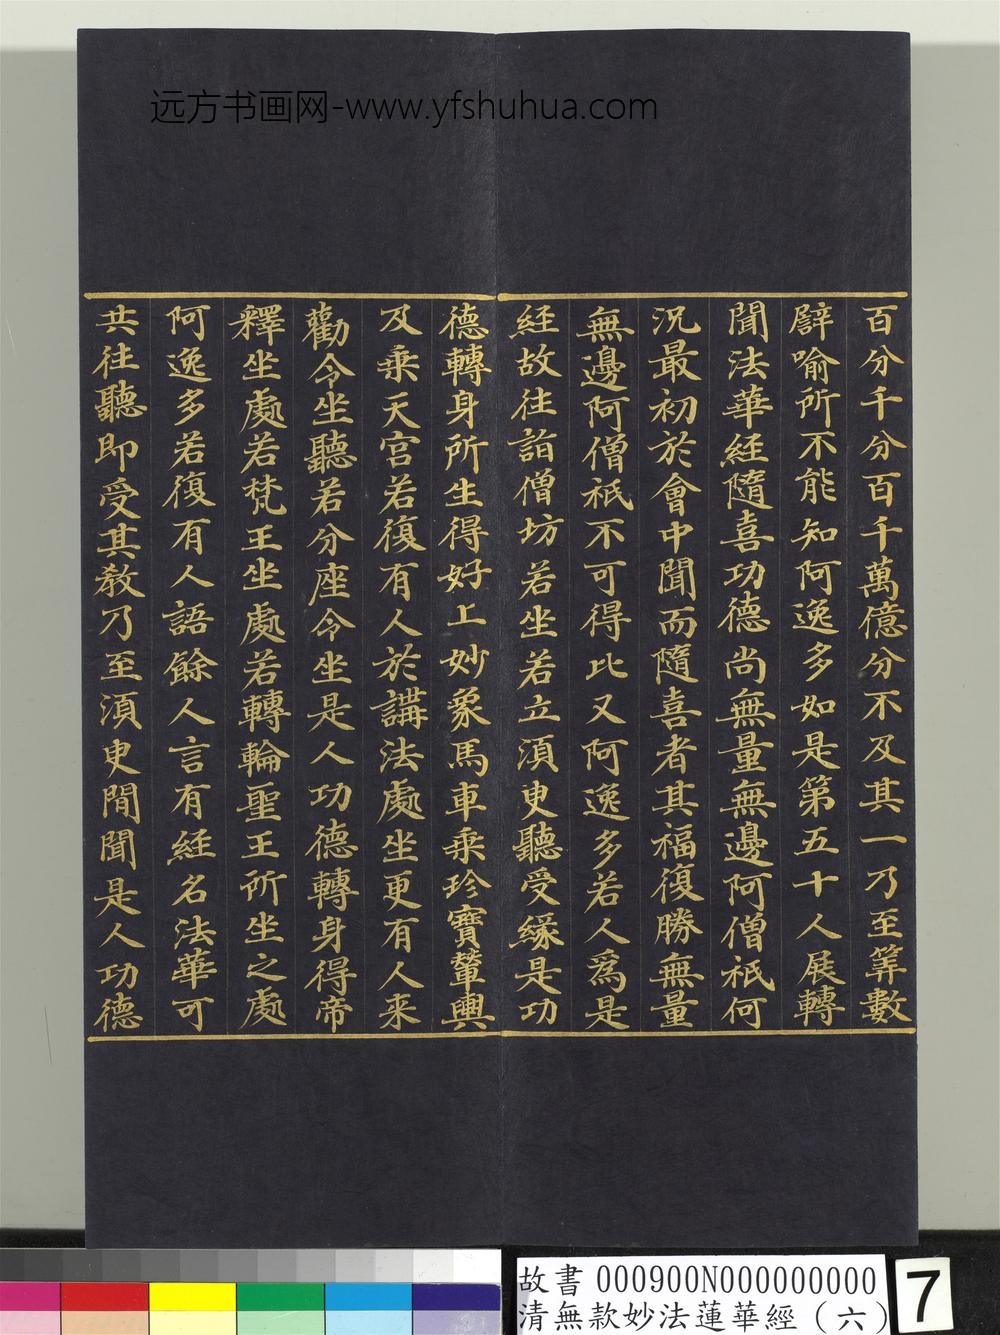 远方书画网-www.yfshuhua.com
百分千分百千萬億分不及其一乃至筭數
譬喻所不能知阿逸多如是第五十人展轉
聞法華經隨喜功德尚無量無邊阿僧祇何
況最初於會中聞而隨喜者其福復勝無量
無邊阿僧祇不可得比又阿逸多若人為是
経故往詣僧坊若坐若立須臾聽受緣是功
德轉身所生得好上妙象馬車乗珍寶輦輿
及乗天宮若復有人於講法處坐更有人来
勸令坐聽若分座令坐是人功德轉身得帝
釋坐處若梵王坐處若轉輪聖王所坐之處
阿逸多若復有人語餘人言有経名法華可
共往聽即受其教乃至須臾間聞是人功德
故書 000900N000000000 7
清無款妙法蓮華經（六）